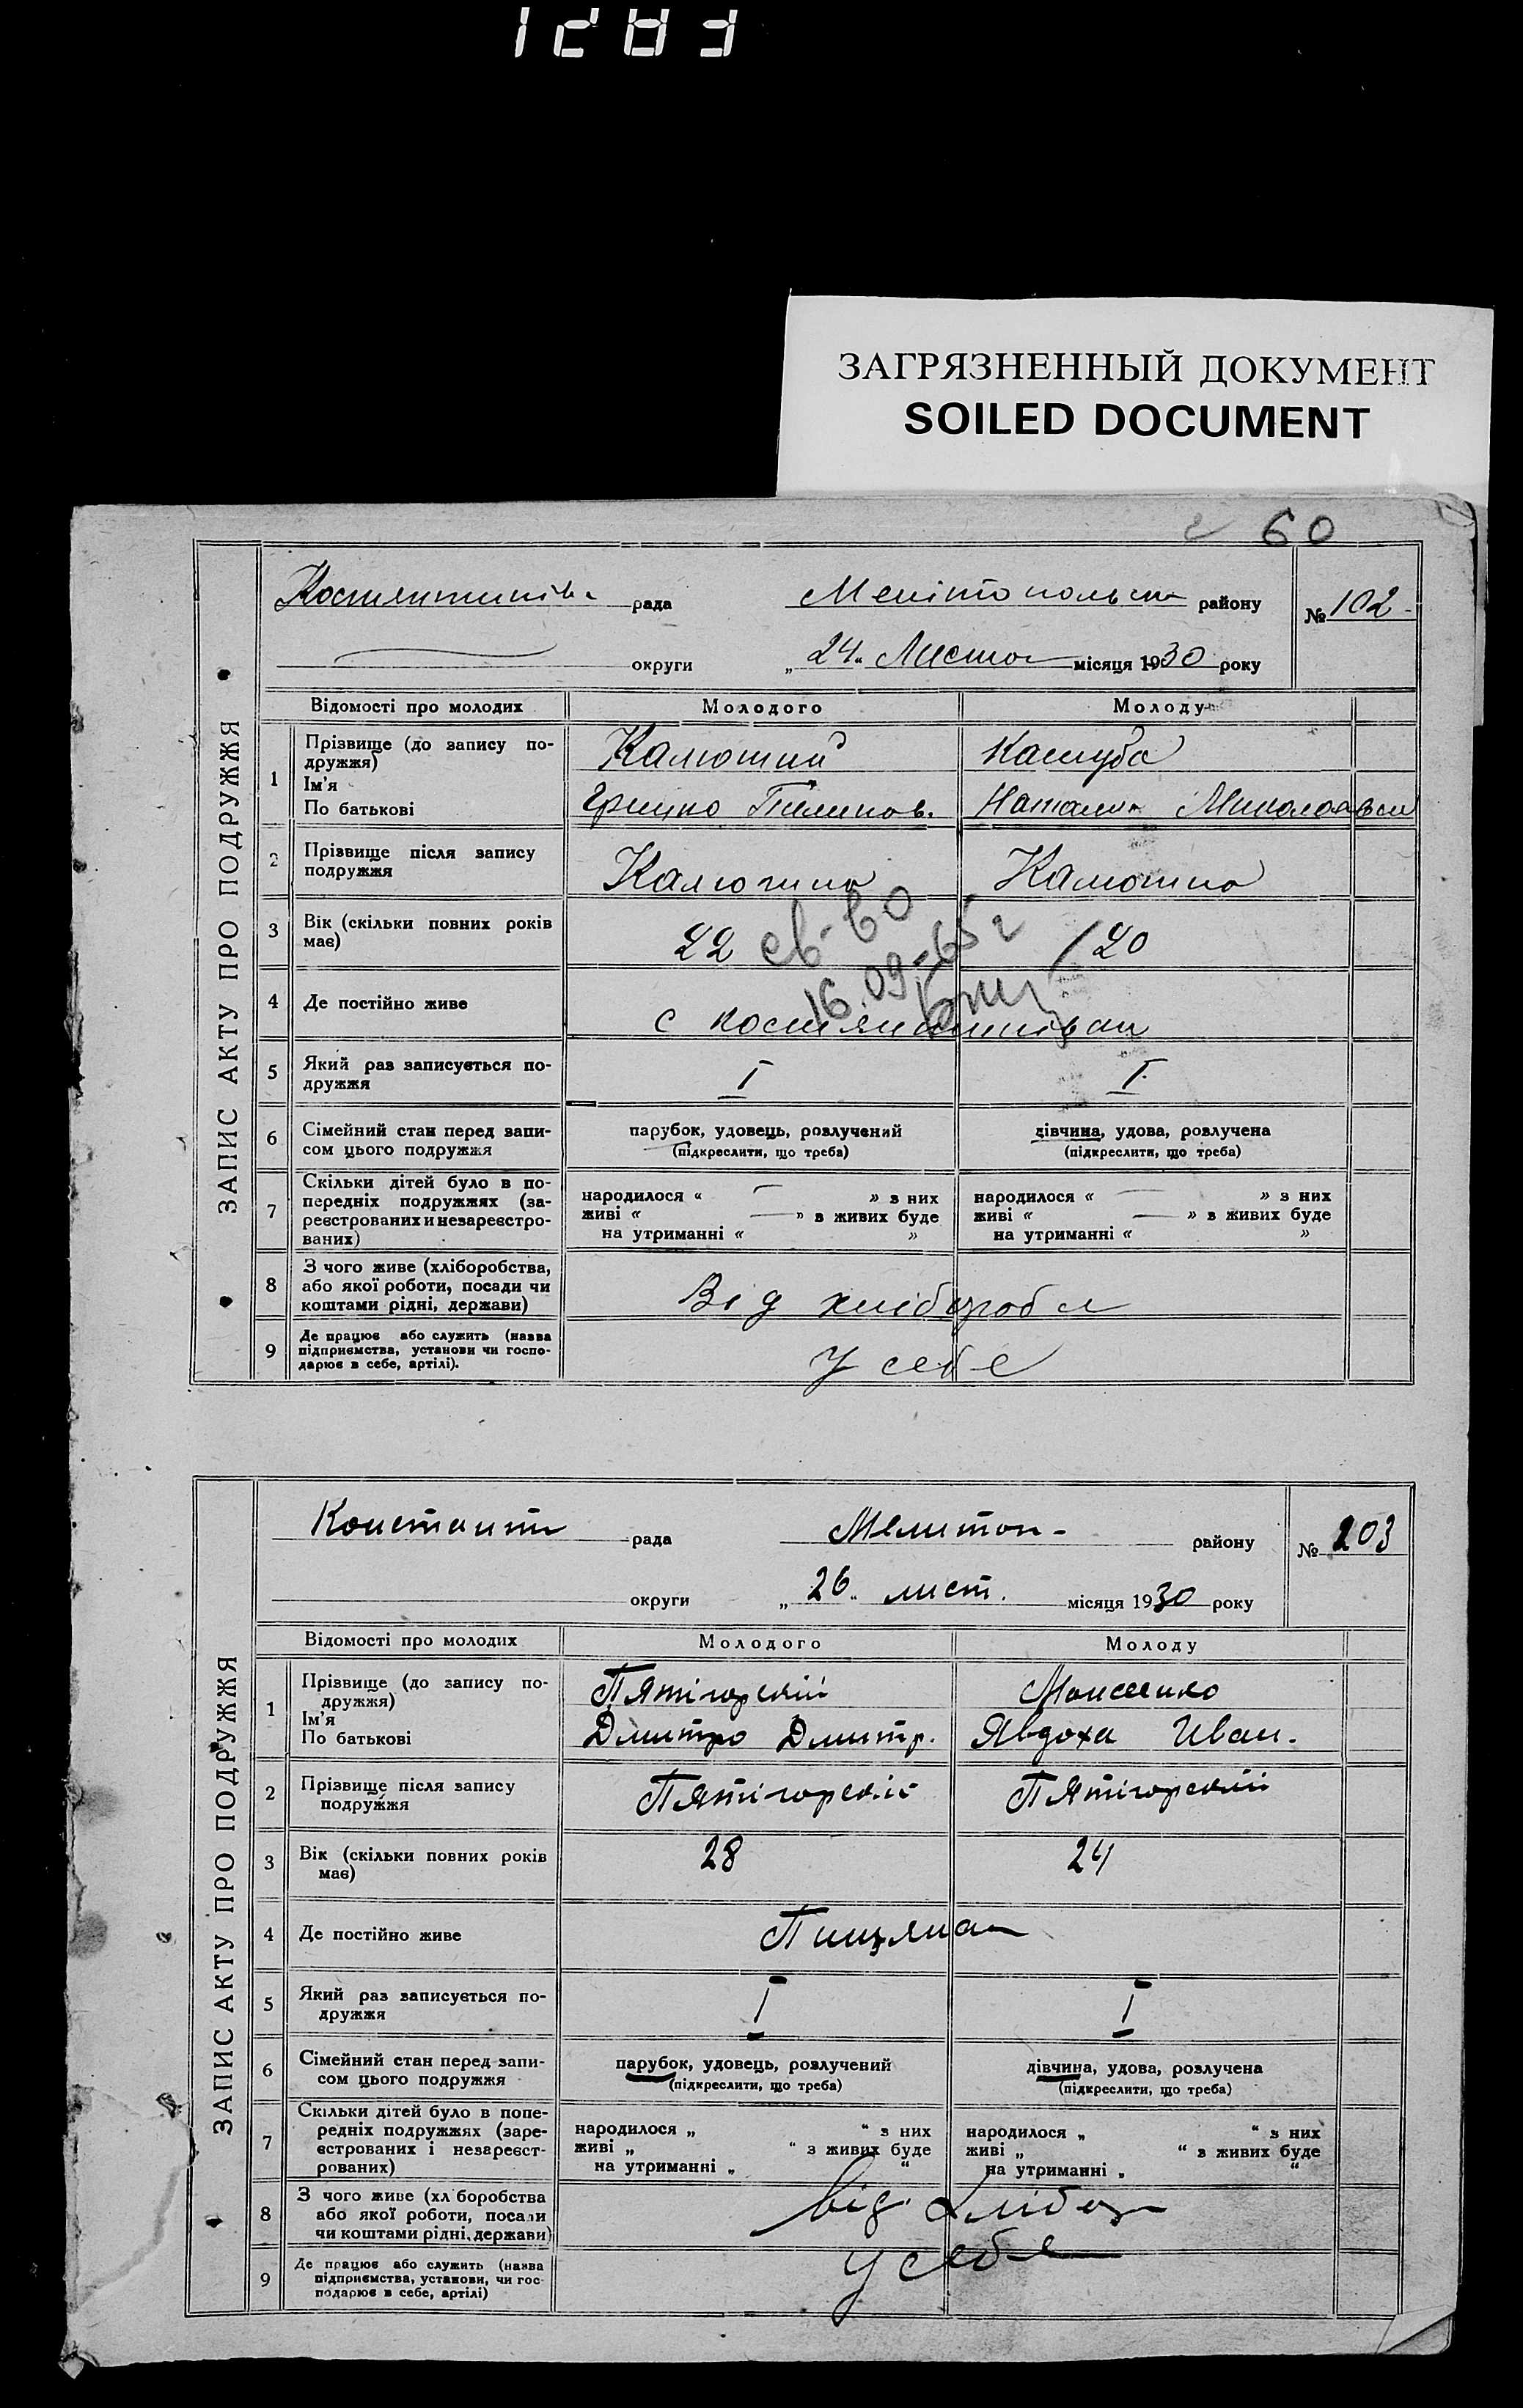 ЗАГРЯЗНЕННЫЙ ДОКУМЕНТ
SOILED DOCUMENT
60
ЗАПИС АКТУ ПРО ПОДРУЖЖЯ
рада
району
№ 102
округи
„24“ місяця 1930 року
Відомості про молодих
Молодого
Молоду
1
Прізвище (до запису по-
дружжя)
Ім'я
По батькові
Калюшний
Кашуба
Грицко
Наталия
2
Прізвище після запису
подружжя
3
Вік (скільки повних років
має)
22
св-во
16.09-65г
20
4
Де постійно живе
с
5
Який раз записується по-
дружжя
I
I
6
Сімейний стан перед запи-
сом цього подружжя
парубок, удовець, розлучений
(підкреслити, що треба)
дівчина, удова, розлучена
(підкреслити, що треба)
7
Скільки дітей було в по-
передніх подружжях (за-
реєстрованих и незареєстро-
ваних)
народилося « — » з них
живі « — » в живих буде
на утриманні « »
народилося « — » з них
живі « — » в живих буде
на утриманні « »
8
З чого живе (хліборобства,
або якої роботи, посади чи
коштами рідні, держави)
Від
9
Де працює або служить (назва
підприємства, установи чи госпо-
дарює в себе, артілі).
У себе
ЗАПИС АКТУ ПРО ПОДРУЖЖЯ
Константи рада
Мелитоп- району
№ 203
округи
„26“ лист. місяця 1930 року
Відомості про молодих
Молодого
Молоду
1
Прізвище (до запису по-
дружжя)
Ім'я
По батькові
Пятігорскій
Моисеенко
Дмитро Дмитр.
Явдоха Иван.
2
Прізвище після запису
подружжя
Пятігорскій
Пятігорскій
3
Вік (скільки повних років
має)
28
24
4
Де постійно живе
5
Який раз записується по-
дружжя
I
I
6
Сімейний стан перед запи-
сом цього подружжя
парубок, удовець, розлучений
(підкреслити, що треба)
дівчина, удова, розлучена
(підкреслити, що треба)
7
Скільки дітей було в попе-
редніх подружжях (заре-
єстрованих і незареєст-
рованих)
народилося „ “ з них
живі „ “ з живих буде
на утриманні „ “
народилося „ “ з них
живі „ “ в живих буде
на утриманні „ “
8
З чого живе (хліборобства
або якої роботи, посади
чи коштами рідні, держави)
від
9
Де працює або служить (назва
підприємства, установи, чи гос-
подарює в себе, артілі)
у себе